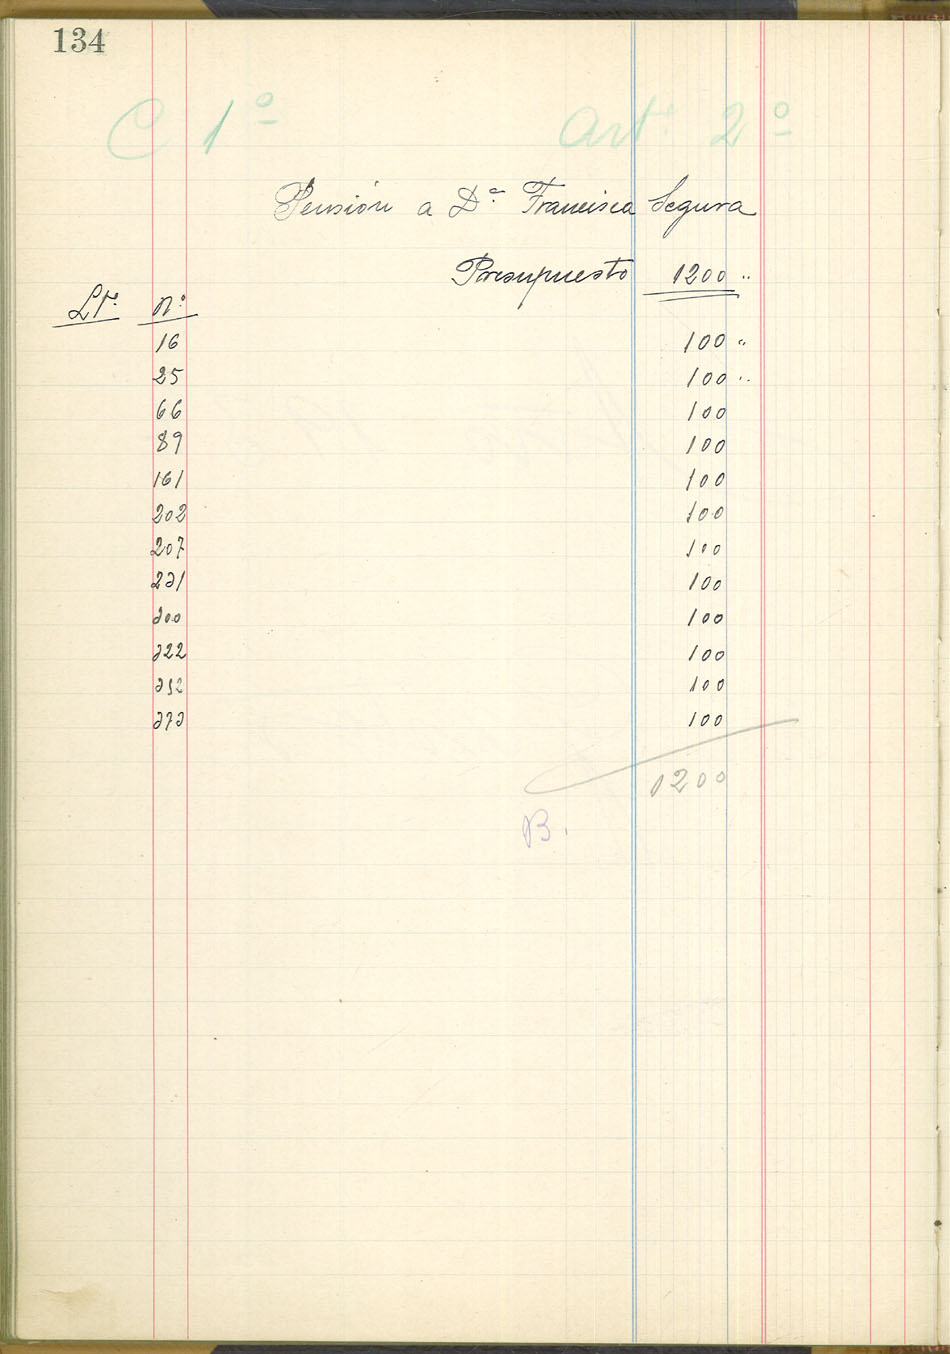 134
C 1º Art. 2º
Pensión a Dª Francisca Segura
Presupuesto 1200 "
Lt. Nº
16 100 "
25 100 "
66 100
89 100
161 100
202 100
207 100
231 100
300 100
322 100
352 100
373 100
1200
B.